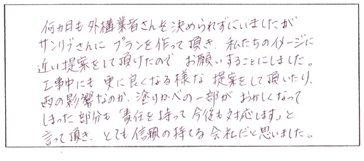 何カ月も外構業者さんを決められずにいましたが
サンリブさんに プランを作って頂き、私たちのイメージに
近い提案をして頂けたので お願いすることにしました。
工事中にも 更に良くなる様な 提案をして頂いたり、
雨の影響なのか、塗りかべの一部が おかしくなって
しまった部分も「責任を持って 今後も対応します」と
言って頂き、とても信頼の持てる 会社だと思いました。